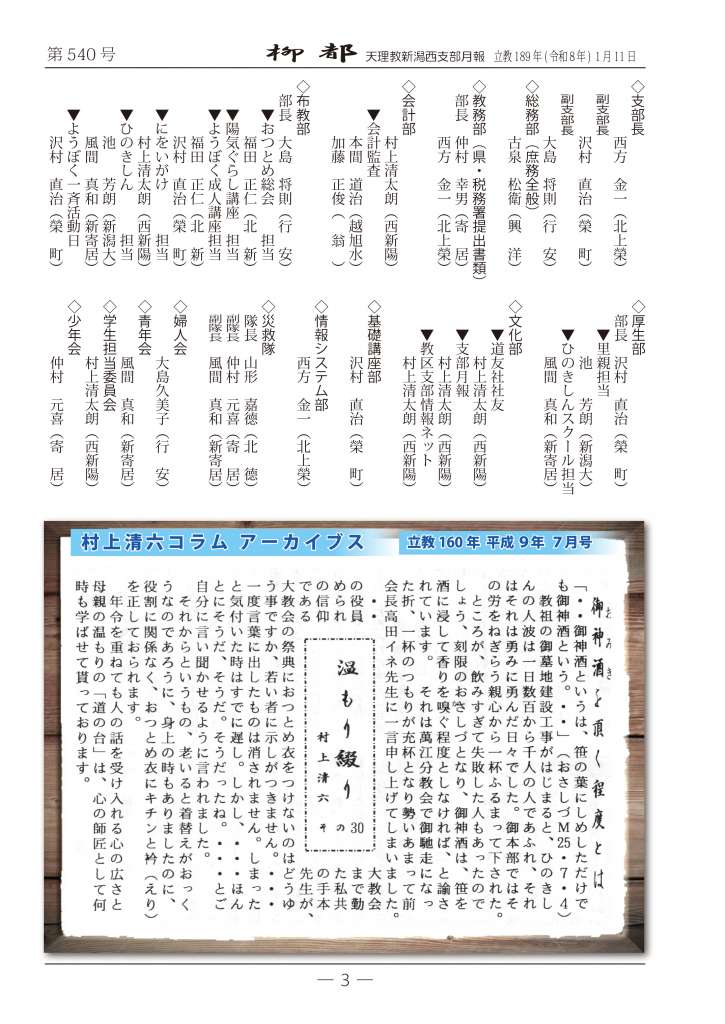 第540号 柳都 天理教新潟西支部月報 立教189年(令和8年) 1月11日
◇支部長
西方 金一(北上榮)
副支部長
沢村 直治(榮 町)
副支部長
大島 将則(行 安)
◇総務部(庶務全般)
古泉 松衛(興 洋)
◇教務部(県・税務署提出書類)
部長 仲村 幸男(寄 居)
西方 金一(北上榮)
◇会計部
村上清太朗(西新陽)
▼会計監査
本間 道治(越旭水)
加藤 正俊( 翁 )
◇布教部
部長 大島 将則(行 安)
▼おつとめ総会 担当
福田 正仁(北 新)
▼陽気ぐらし講座 担当
▼ようぼく成人講座担当
福田 正仁(北 新)
沢村 直治(榮 町)
▼にをいがけ 担当
村上清太朗(西新陽)
▼ひのきしん 担当
池 芳朗(新潟大)
風間 真和(新寄居)
▼ようぼく一斉活動日
沢村 直治(榮 町)
◇厚生部
部長 沢村 直治(榮 町)
▼里親担当
池 芳朗(新潟大)
▼ひのきしんスクール担当
風間 真和(新寄居)
◇文化部
▼道友社社友
村上清太朗(西新陽)
▼支部月報
村上清太朗(西新陽)
▼教区支部情報ネット
村上清太朗(西新陽)
◇基礎講座部
沢村 直治(榮 町)
◇情報システム部
西方 金一(北上榮)
◇災救隊
隊長 山形 嘉徳(北 德)
副隊長 仲村 元喜(寄 居)
副隊長 風間 真和(新寄居)
◇婦人会
大島久美子(行 安)
◇青年会
風間 真和(新寄居)
◇学生担当委員会
村上清太朗(西新陽)
◇少年会
仲村 元喜(寄 居)
村上清六コラム アーカイブス
立教160年 平成9年 7月号
御神酒を頂く程度とは
おみき
「・・御神酒というは、笹の葉にしめしただけで
も御神酒という。・・」(おさしづM25・7・4)
教祖の御墓地建設工事がはじまると、ひのきし
んの人波は一日数百から千人の人であふれ、それ
はそれは勇みに勇んだ日々でした。御本部ではそ
の労をねぎらう親心から一杯ふるまって下された。
ところが、飲みすぎて失敗した人もあったので
しょう、刻限のおさしづとなり、御神酒は、笹を
酒に浸して香りを嗅ぐ程度としなければ、と諭さ
れています。 それは萬江分教会で御馳走になっ
た折、一杯のつもりが充杯となり勢いあまって前
会長高田イネ先生に一言申し上げてしまいました。
・・ 大教会
の役員 まで勤
められ た私共
の信仰 の手本
である 先生が、
温もり綴り
村上清六 その30
大教会の祭典におつとめ衣をつけないのはどうゆ
う事ですか、若い者に示しがつきません。・・・
一度言葉に出したものは消されません。しまった
と気付いた時はすでに遅し。しかし、・・・ほん
とにそうだ、そうだ。そうだったね。・・・とご
自分に言い聞かせるように言われました。
それからというもの、老いると着替えがおっく
うなのであろうに、身上の時もありましたのに、
役割に関係なく、おつとめ衣にキチンと衿(えり)
を正しておられます。
年令を重ねても人の話を受け入れる心の広さと
母親の温もりの「道の台」は、心の師匠として何
時も学ばせて貰っております。
― 3 ―